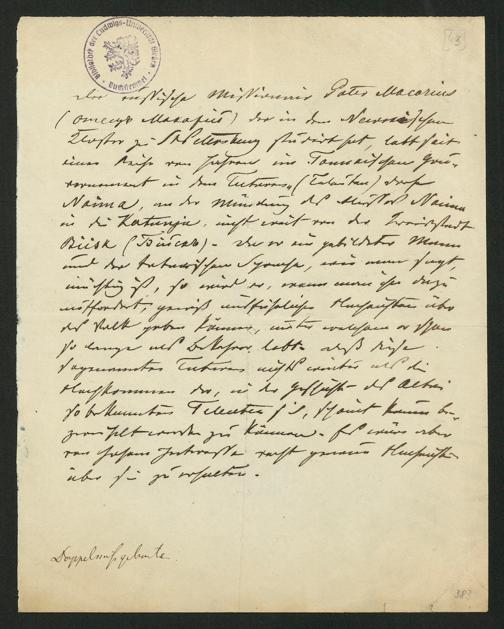 [48]
Bibliothek der Ludwigs-Universität Giessen
Der russische Missionair Pater Macarius
(отецъ Макарiй) der in dem Newskischen
Kloster zu St Petersburg studirt hat, lebt seit
einer Reihe von Jahren im Tomskischen Gou-
vernement in dem Tataren- (Teleuten) dorfe
Naima, an der Mündung des Flusses Naima
in die Katunja, nicht weit von der Kreisstadt
Biisk (Бiйскъ) - Da er ein gebildeter Mann
und der tatarischen Sprache, wie man sagt,
mächtig ist, so wird er, wenn man ihn dazu
auffordert, gewiss ausführliche Nachrichten über
das Volk geben können, unter welchem er schon
so lange als Bekehrer lebt. dass diese
sogenannten Tataren nichts weiter als die
Nachkommen der, in der Geschichte des Altai
so bekannten Teleuten sind, scheint kaum be-
zweifelt werden zu können. Es wäre aber
von hohem Interesse recht genaue Nachrichten
über sie zu erhalten.